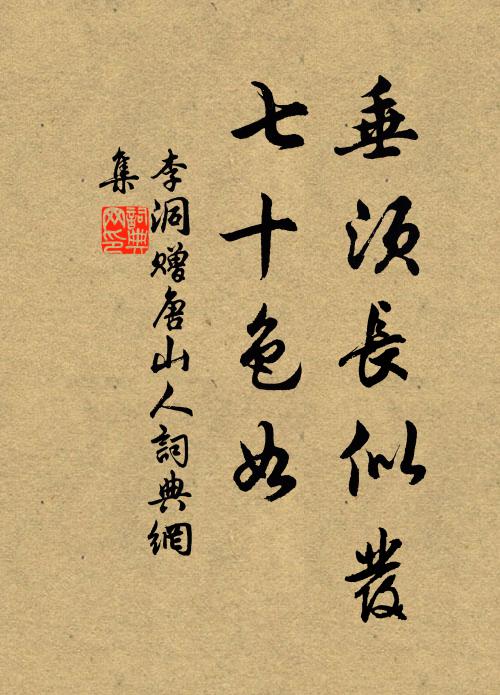 垂須長似發
七十色如
李洞贈唐山人詞典網
集
詞典
网印